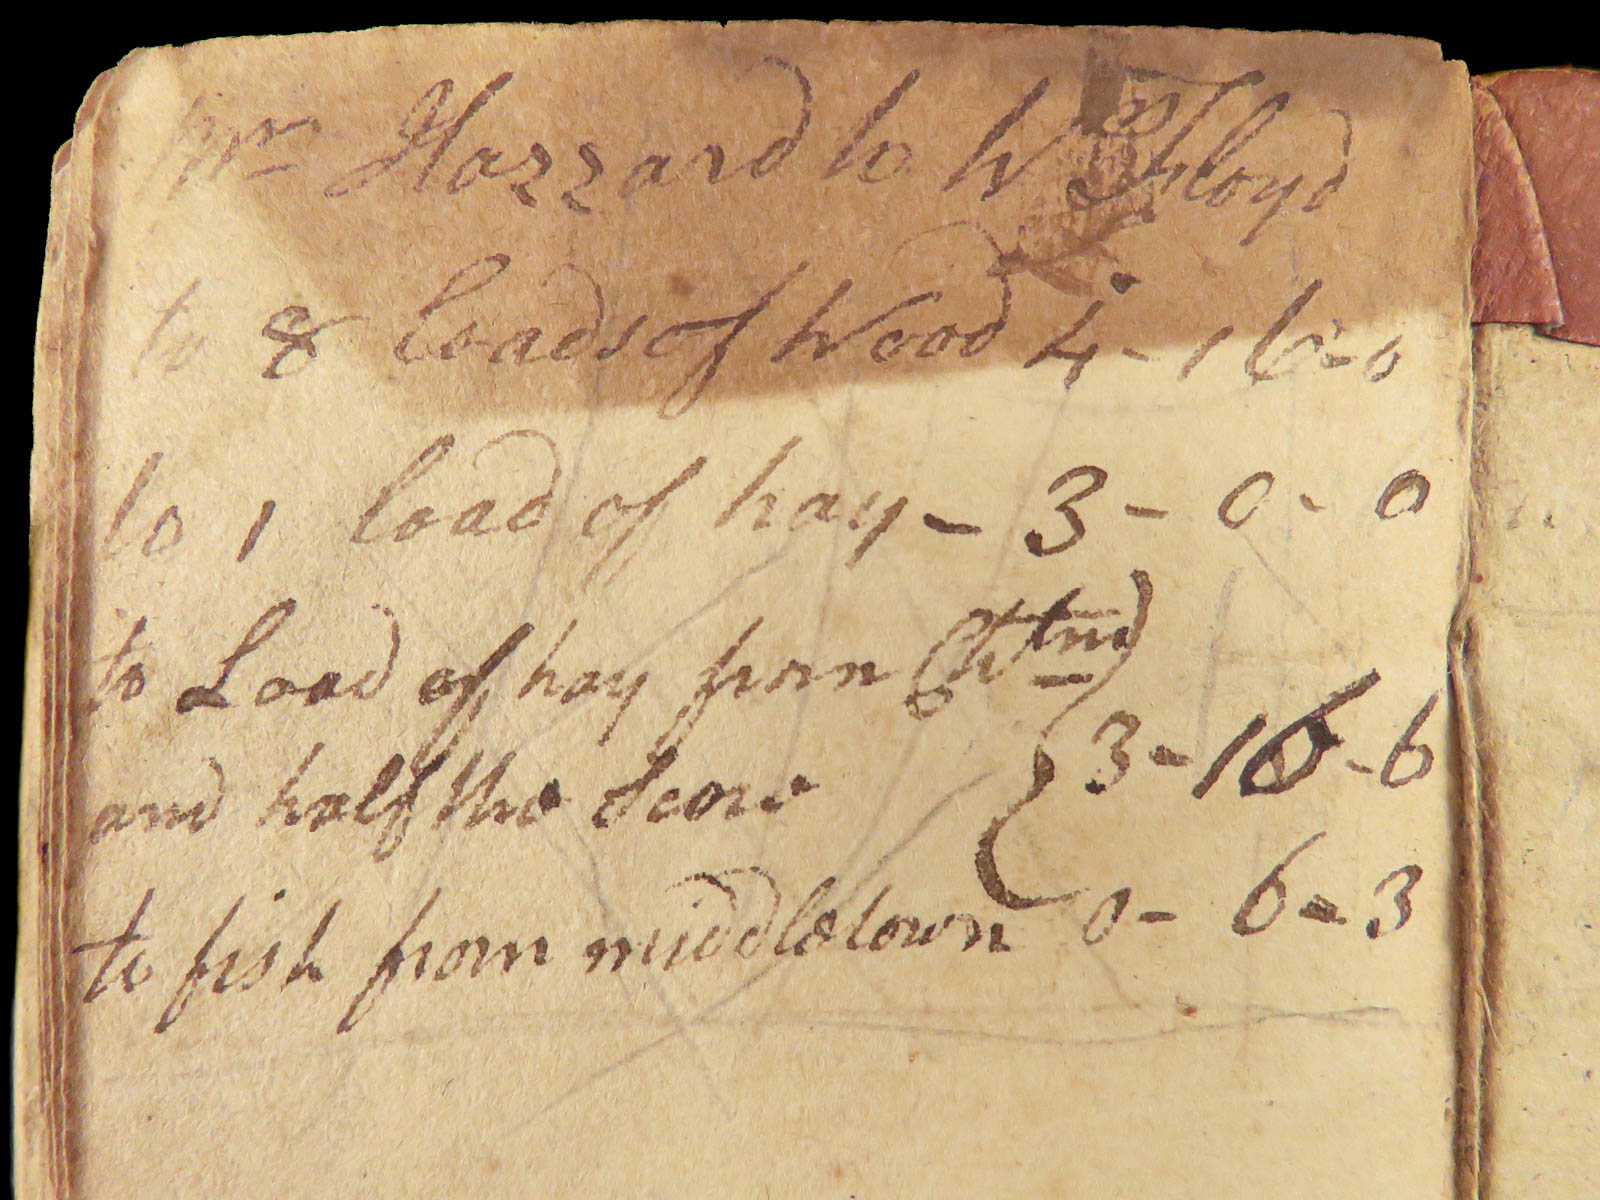 Mr Hazzard to Wm Floyd
to 8 loads of Wood 4-16-0
to 1 load of hay - 3 - 0 - 0
to Load of hay from
and half the Scow 3-16-6
to fish from middletown 0-6-3